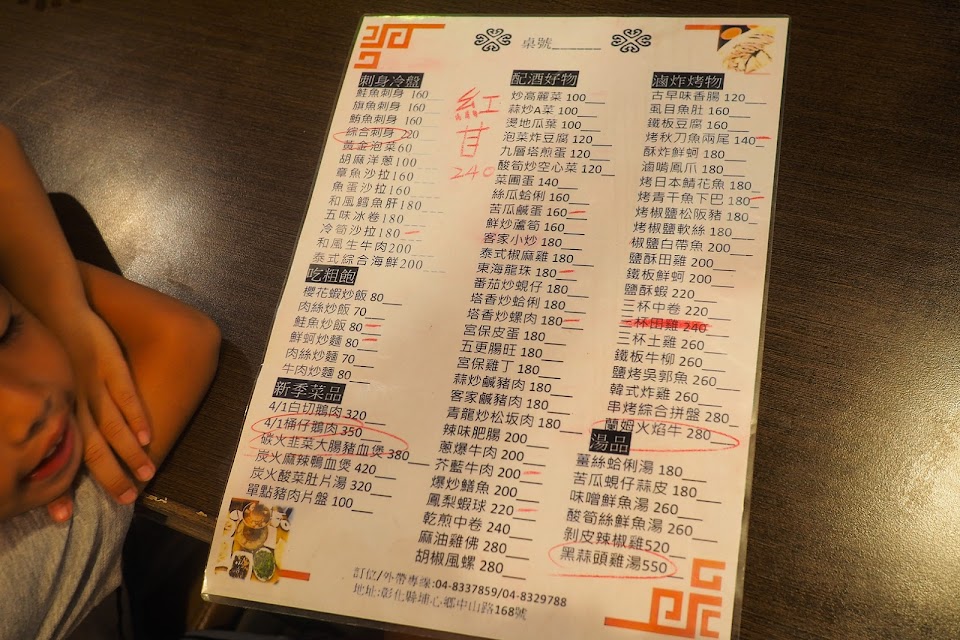 桌號______
刺身冷盤
鮭魚刺身 160___
旗魚刺身 160___
鮪魚刺身 160___
綜合刺身 220
黃金泡菜60
胡麻洋蔥100
章魚沙拉160___
魚蛋沙拉160___
和風鱈魚肝180___
五味冰卷180___
冷筍沙拉180___
和風生牛肉200___
泰式綜合海鮮200___
吃粗飽
櫻花蝦炒飯 80___
肉絲炒飯 70___
鮭魚炒飯 80___
鮮蚵炒麵 80___
肉絲炒麵 70___
牛肉炒麵 80___
新季菜品
4/1白切鵝肉320___
4/1桶仔鵝肉350___
碳火韭菜大腸豬血煲 380___
炭火麻辣鴨血煲 420___
炭火酸菜肚片湯 320___
單點豬肉片盤 100___
紅
甘
240
配酒好物
炒高麗菜 100___
蒜炒A菜 100___
燙地瓜葉 100___
泡菜炸豆腐 120___
九層塔煎蛋 120___
酸筍炒空心菜 120___
菜圃蛋 140___
絲瓜蛤蜊 160___
苦瓜鹹蛋 160___
鮮炒蘆筍 160___
客家小炒 180___
泰式椒麻雞 180___
東海龍珠 180___
番茄炒蜆仔 180___
塔香炒蛤蜊 180___
塔香炒螺肉 180___
宮保皮蛋 180___
五更腸旺 180___
宮保雞丁 180___
蒜炒鹹豬肉 180___
客家鹹豬肉 180___
青龍炒松坂肉 180___
辣味肥腸 200___
蔥爆牛肉 200___
芥藍牛肉 200___
爆炒鱔魚 200___
鳳梨蝦球 220___
乾煎中卷 240___
麻油雞佛 280___
胡椒風螺 280___
滷炸烤物
古早味香腸 120___
虱目魚肚 160___
鐵板豆腐 160___
烤秋刀魚兩尾 140___
酥炸鮮蚵 180___
滷啃鳳爪 180___
烤日本鯖花魚 180___
烤青干魚下巴 180___
烤椒鹽松阪豬 180___
烤椒鹽軟絲 180___
椒鹽白帶魚 200___
鹽酥田雞 200___
鐵板鮮蚵 200___
鹽酥蝦 220___
三杯中卷 220___
三杯田雞 240___
三杯土雞 260___
鐵板牛柳 260___
鹽烤吳郭魚 260___
韓式炸雞 260___
串烤綜合拼盤 280___
蘭姆火焰牛 280___
湯品
薑絲蛤蜊湯 180___
苦瓜蜆仔蒜皮 180___
味噌鮮魚湯 260___
酸筍絲鮮魚湯 260___
剝皮辣椒雞520___
黑蒜頭雞湯550___
訂位/外帶專線:04-8337859/04-8329788
地址:彰化縣埔心鄉中山路168號